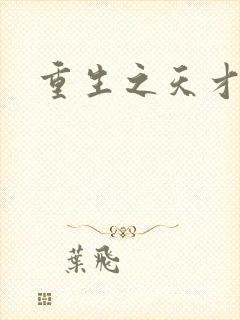 重生之天才
葉飛